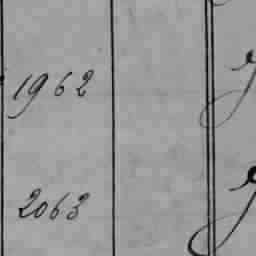 1962
2063